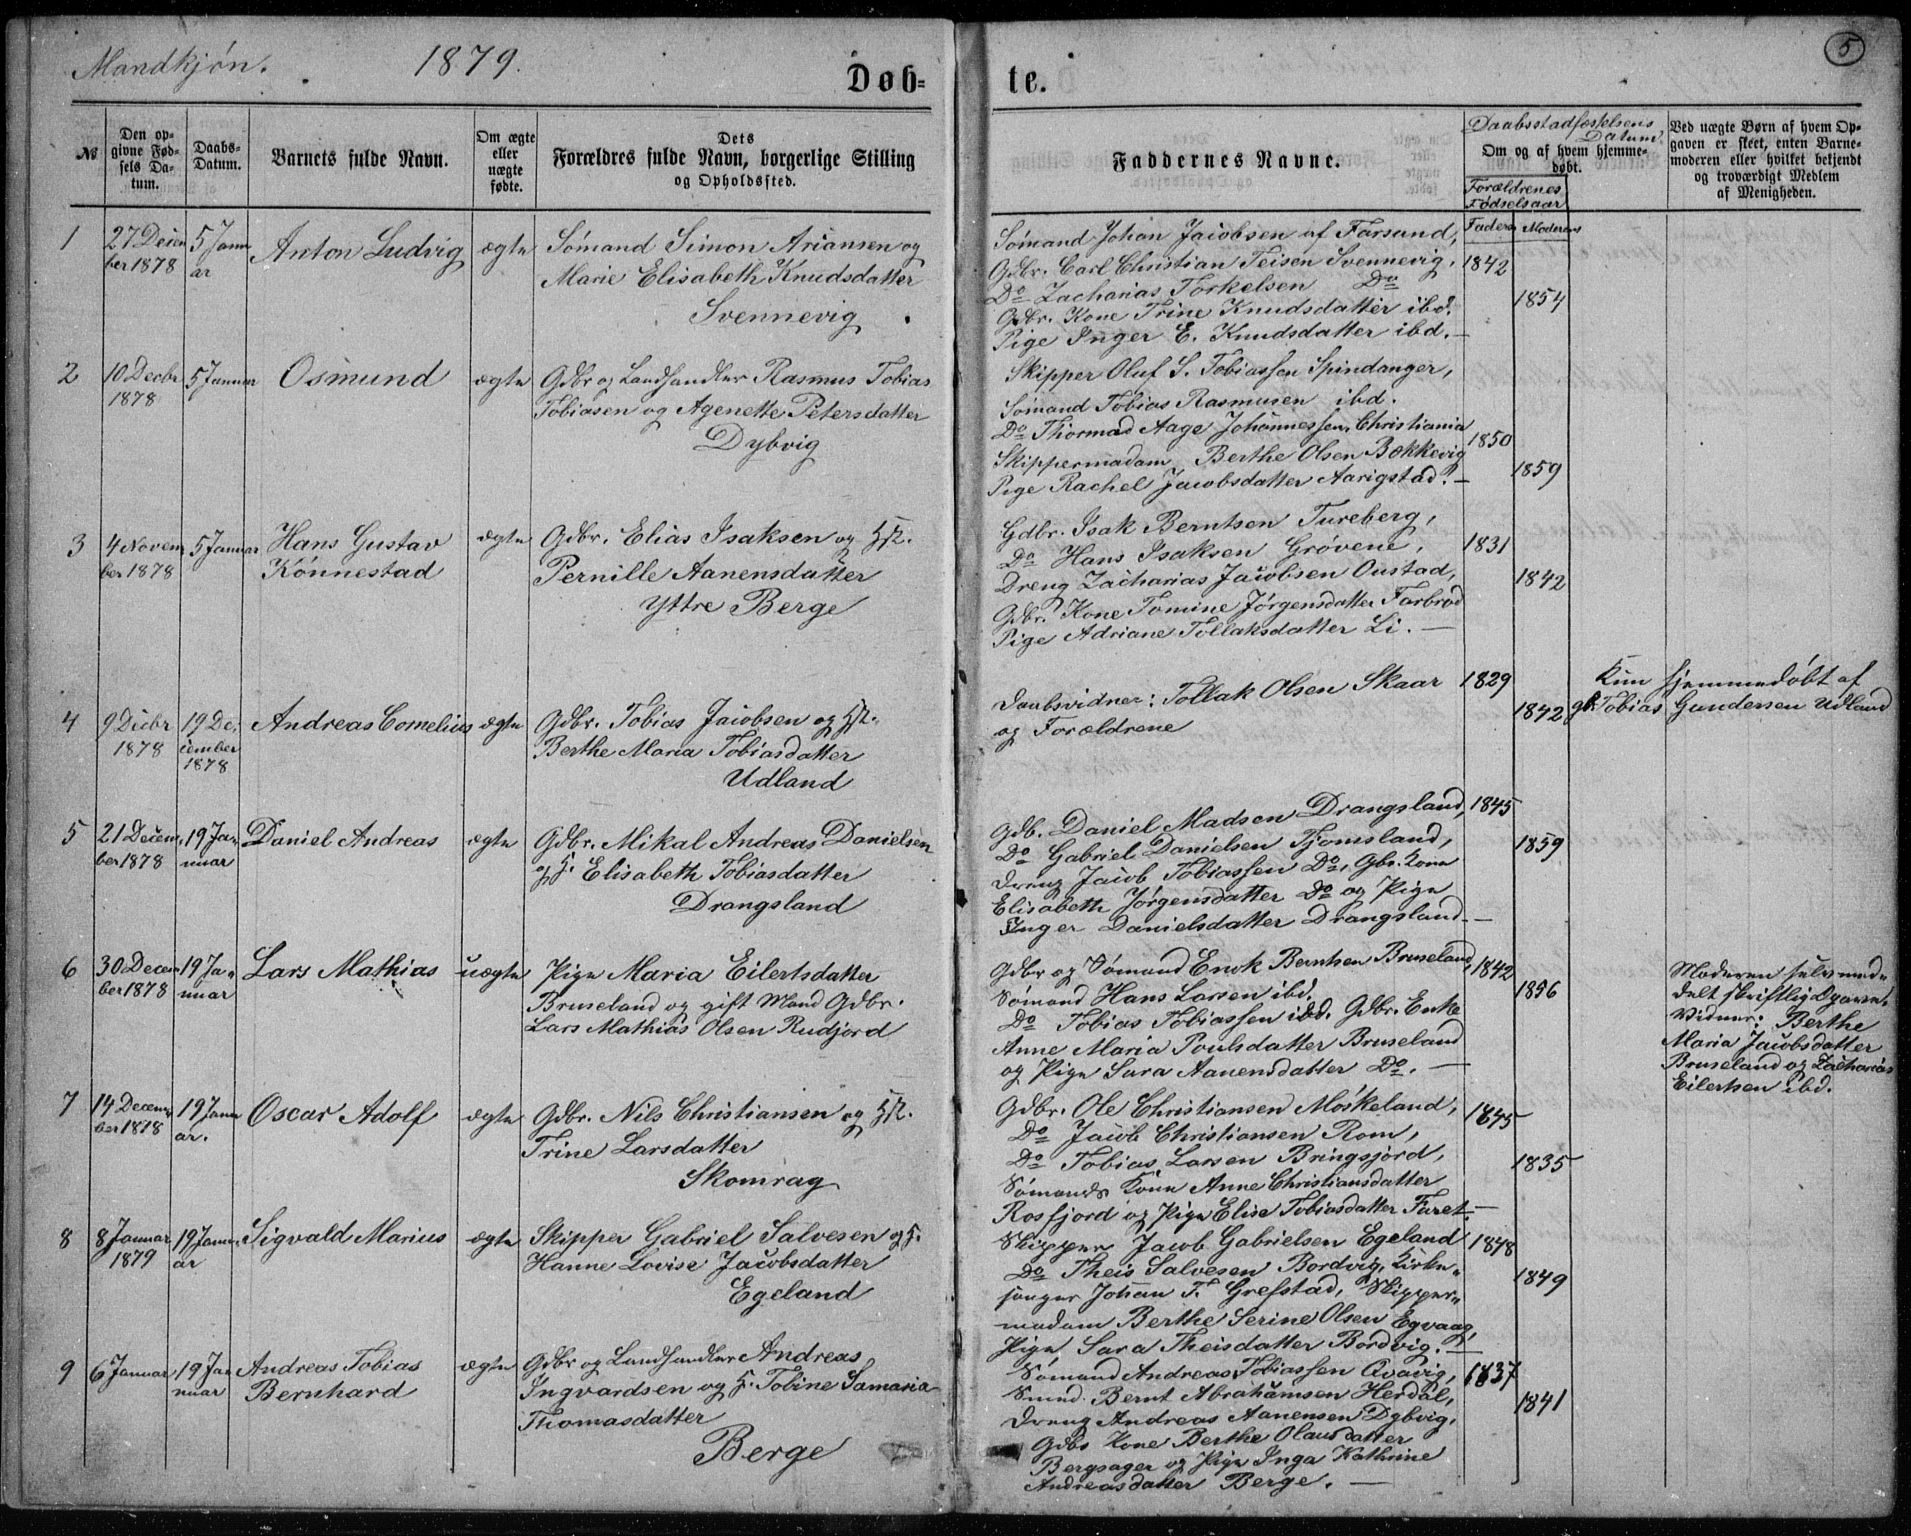 Mandkjøn. 1879. Døb= te. 5
No
Den op-
givne Fød-
sels Da-
tum.
Daabs-
Datum.
Barnets fulde Navn.
Om ægte
eller
uægte
fødte.
Dets
Forældres fulde Navn, borgerlige Stilling
og Opholdssted.
Faddernes Navne.
Daabsstadfæstelsens
Datum
Om og af hvem hjemme-
døbt.
Forældrenes
Fødselsaar
Faders Moderens
Ved uægte Børn af hvem Op-
gaven er skeet, enten Barne-
moderen eller hvilket bekjendt
og troværdigt Medlem
af Menigheden.
1
27 Decem
ber 1878
5 Janu
ar
Anton Ludvig
ægte
Sømand Simon Ariansen og
Marie Elisabeth Knudsdatter
Svennevig
Sømand Johan Jacobsen af Farsund,
Gdbr. Carl Christian Teisen Svennevig,
Do Zacharias Torkelsen Do
Gdbr. Kone Trine Knudsdatter ibd.
Pige Inger E. Knudsdatter ibd. —
1842
1854
2
10 Decbr
1878
5 Januar
Osmund
ægte
Gdbr og Landhandler Rasmus Tobias
Tobiasen og Agenette Petersdatter
Dybvig
Skipper Oluf S. Tobiassen Spindanger,
Sømand Tobias Rasmusen ibd.
Do Thormod Aage Johannessen, Christiania
Skippermadam Berthe Olsen Bækkevig
Pige Rachel Jacobsdatter Aarigstad. —
1850
1859
3
4 Novem
ber 1878
5 Januar
Hans Gustav
Kønnestad
ægte
Gdbr. Elias Isaksen og H.
Pernille Aanensdatter
Yttre Berge
Gdbr. Isak Berntsen Tureberg,
Do Hans Isaksen Grøvene,
Dreng Zacharias Jacobsen Oustad,
Gdbr. Kone Tomine Jørgensdatter Farbrod
Pige Adriane Tollaksdatter Li. —
1831
1842
4
9 Decbr
1878
19 De-
cember
1878
Andreas Cornelius
ægte
Gdbr. Tobias Jacobsen og H.
Berthe Maria Tobiasdatter
Udland
Daabsvidner: Tollak Olsen Skaar
og Forældrene
1829
1842
Kun hjemmedøbt af
gb. Tobias Gundersen Udland
5
21 Decem-
ber 1878
19 Ja-
nuar
Daniel Andreas
ægte
Gdbr. Mikal Andreas Danielsen
og H. Elisabeth Tobiasdatter
Drangsland
Gdb. Daniel Madsen Drangsland,
Do Gabriel Danielsen Tjomsland,
Dreng Jacob Tobiassen Do, Gbr. Kone
Elisabeth Jørgensdatter Do og Pige
Inger Danielsdatter Drangsland. —
1845
1859
6
30 Decem-
ber 1878
19 Ja-
nuar
Lars Mathias
uægte
Pige Maria Eilertsdatter
Bruseland og gift Mand Gdbr.
Lars Mathias Olsen Rudjord
Gdbr og Sømand Enok Berntsen Bruseland,
Sømand Hans Larsen ibd.
Do Tobias Tobiassen ibd. Gdbr. Enke
Anne Maria Poulsdatter Bruseland
og Pige Sara Aanensdatter Do. —
1842
1856
Moderen selv med-
delt skriftlig Opgave.
Vidner: Berthe
Maria Jacobsdatter
Bruseland og Zacharias
Eilertsen ibd.
7
14 Decem-
ber 1878
19 Janu
ar.
Oscar Adolf
ægte
Gdbr. Nils Christiansen og H.
Trine Larsdatter
Skomrag
Gdbr. Ole Christiansen Møskeland,
Do Jacob Christiansen Rom,
Do Tobias Larsen Bringsjord,
Sømands Kone Anne Christiansdatter
Rosfjord og Pige Elise Tobiasdatter Faret. —
1845
1835
8
8 Januar
1879
19 Janu-
ar
Sigvald Marius
ægte
Skipper Gabriel Salvesen og H.
Hanne Lovise Jacobsdatter
Egeland
Skipper Jacob Gabrielsen Egeland
Do Theis Salvesen Bordvig, Kirke-
sanger Johan T. Grefstad, Skipper-
madam Berthe Serine Olsen Egvaag,
Pige Sara Theisdatter Bordvig. —
1848
1849
9
6 Januar
19 Ja-
nuar
Andreas Tobias
Bernhard
ægte
Gdbr og Landhandler Andreas
Ingvardsen og H. Tobine Samaria
Thomasdatter
Berge
Sømand Andreas Tobiassen Qvavig,
Smed. Bernt Abrahamsen Herdal,
Dreng Andreas Aanensen Dybvig,
Gdbs Kone Berthe Olausdatter
Bergsager og Pige Inga Kathrine
Andreasdatter Berge. —
1837
1841